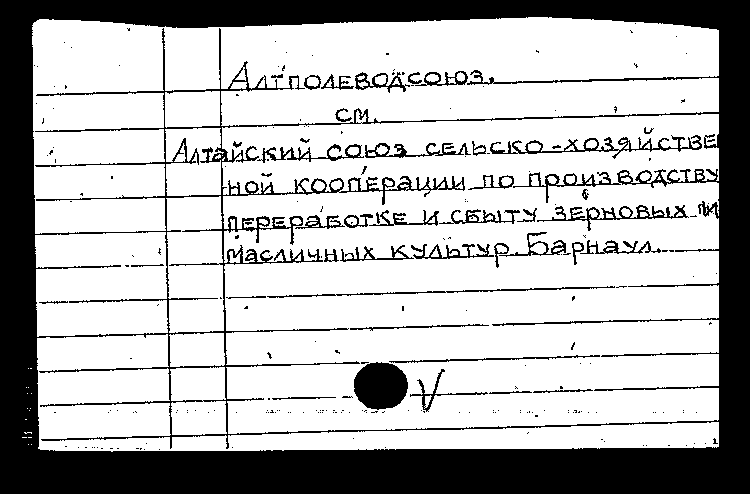 Алтполеводсоюз.
см.
Алтайский союз сельско-хозяйствен
ной кооперации по производству
переработке и сбыту зерновых и
масличных культур. Барнаул.
V